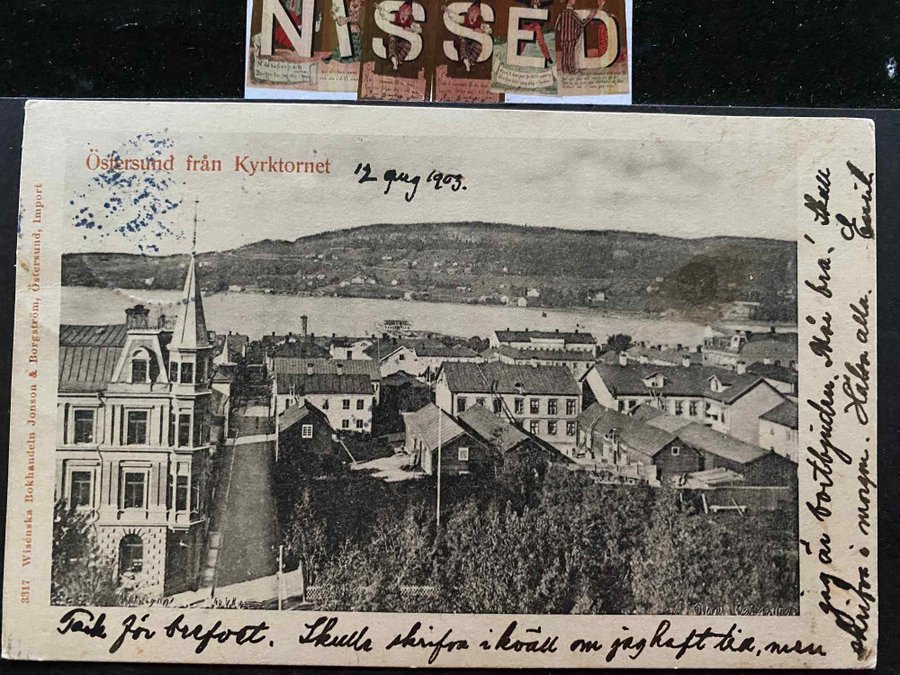 NISSED
Östersund från Kyrktornet
12 aug 1903.
3317 Wisénska Bokhandeln Jonson & Borgström, Östersund, Import
Tack för brefvet. Skulle skrifva i kväll om jag haft tid, men
jag är bortbjuden. Mår bra! Skall
skrifva i morgon. Hälsa alla. Emil